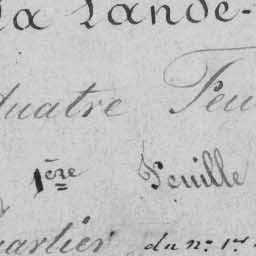 la Lande-
Quatre Feu
1ère Feuille
uartier du no. 1er